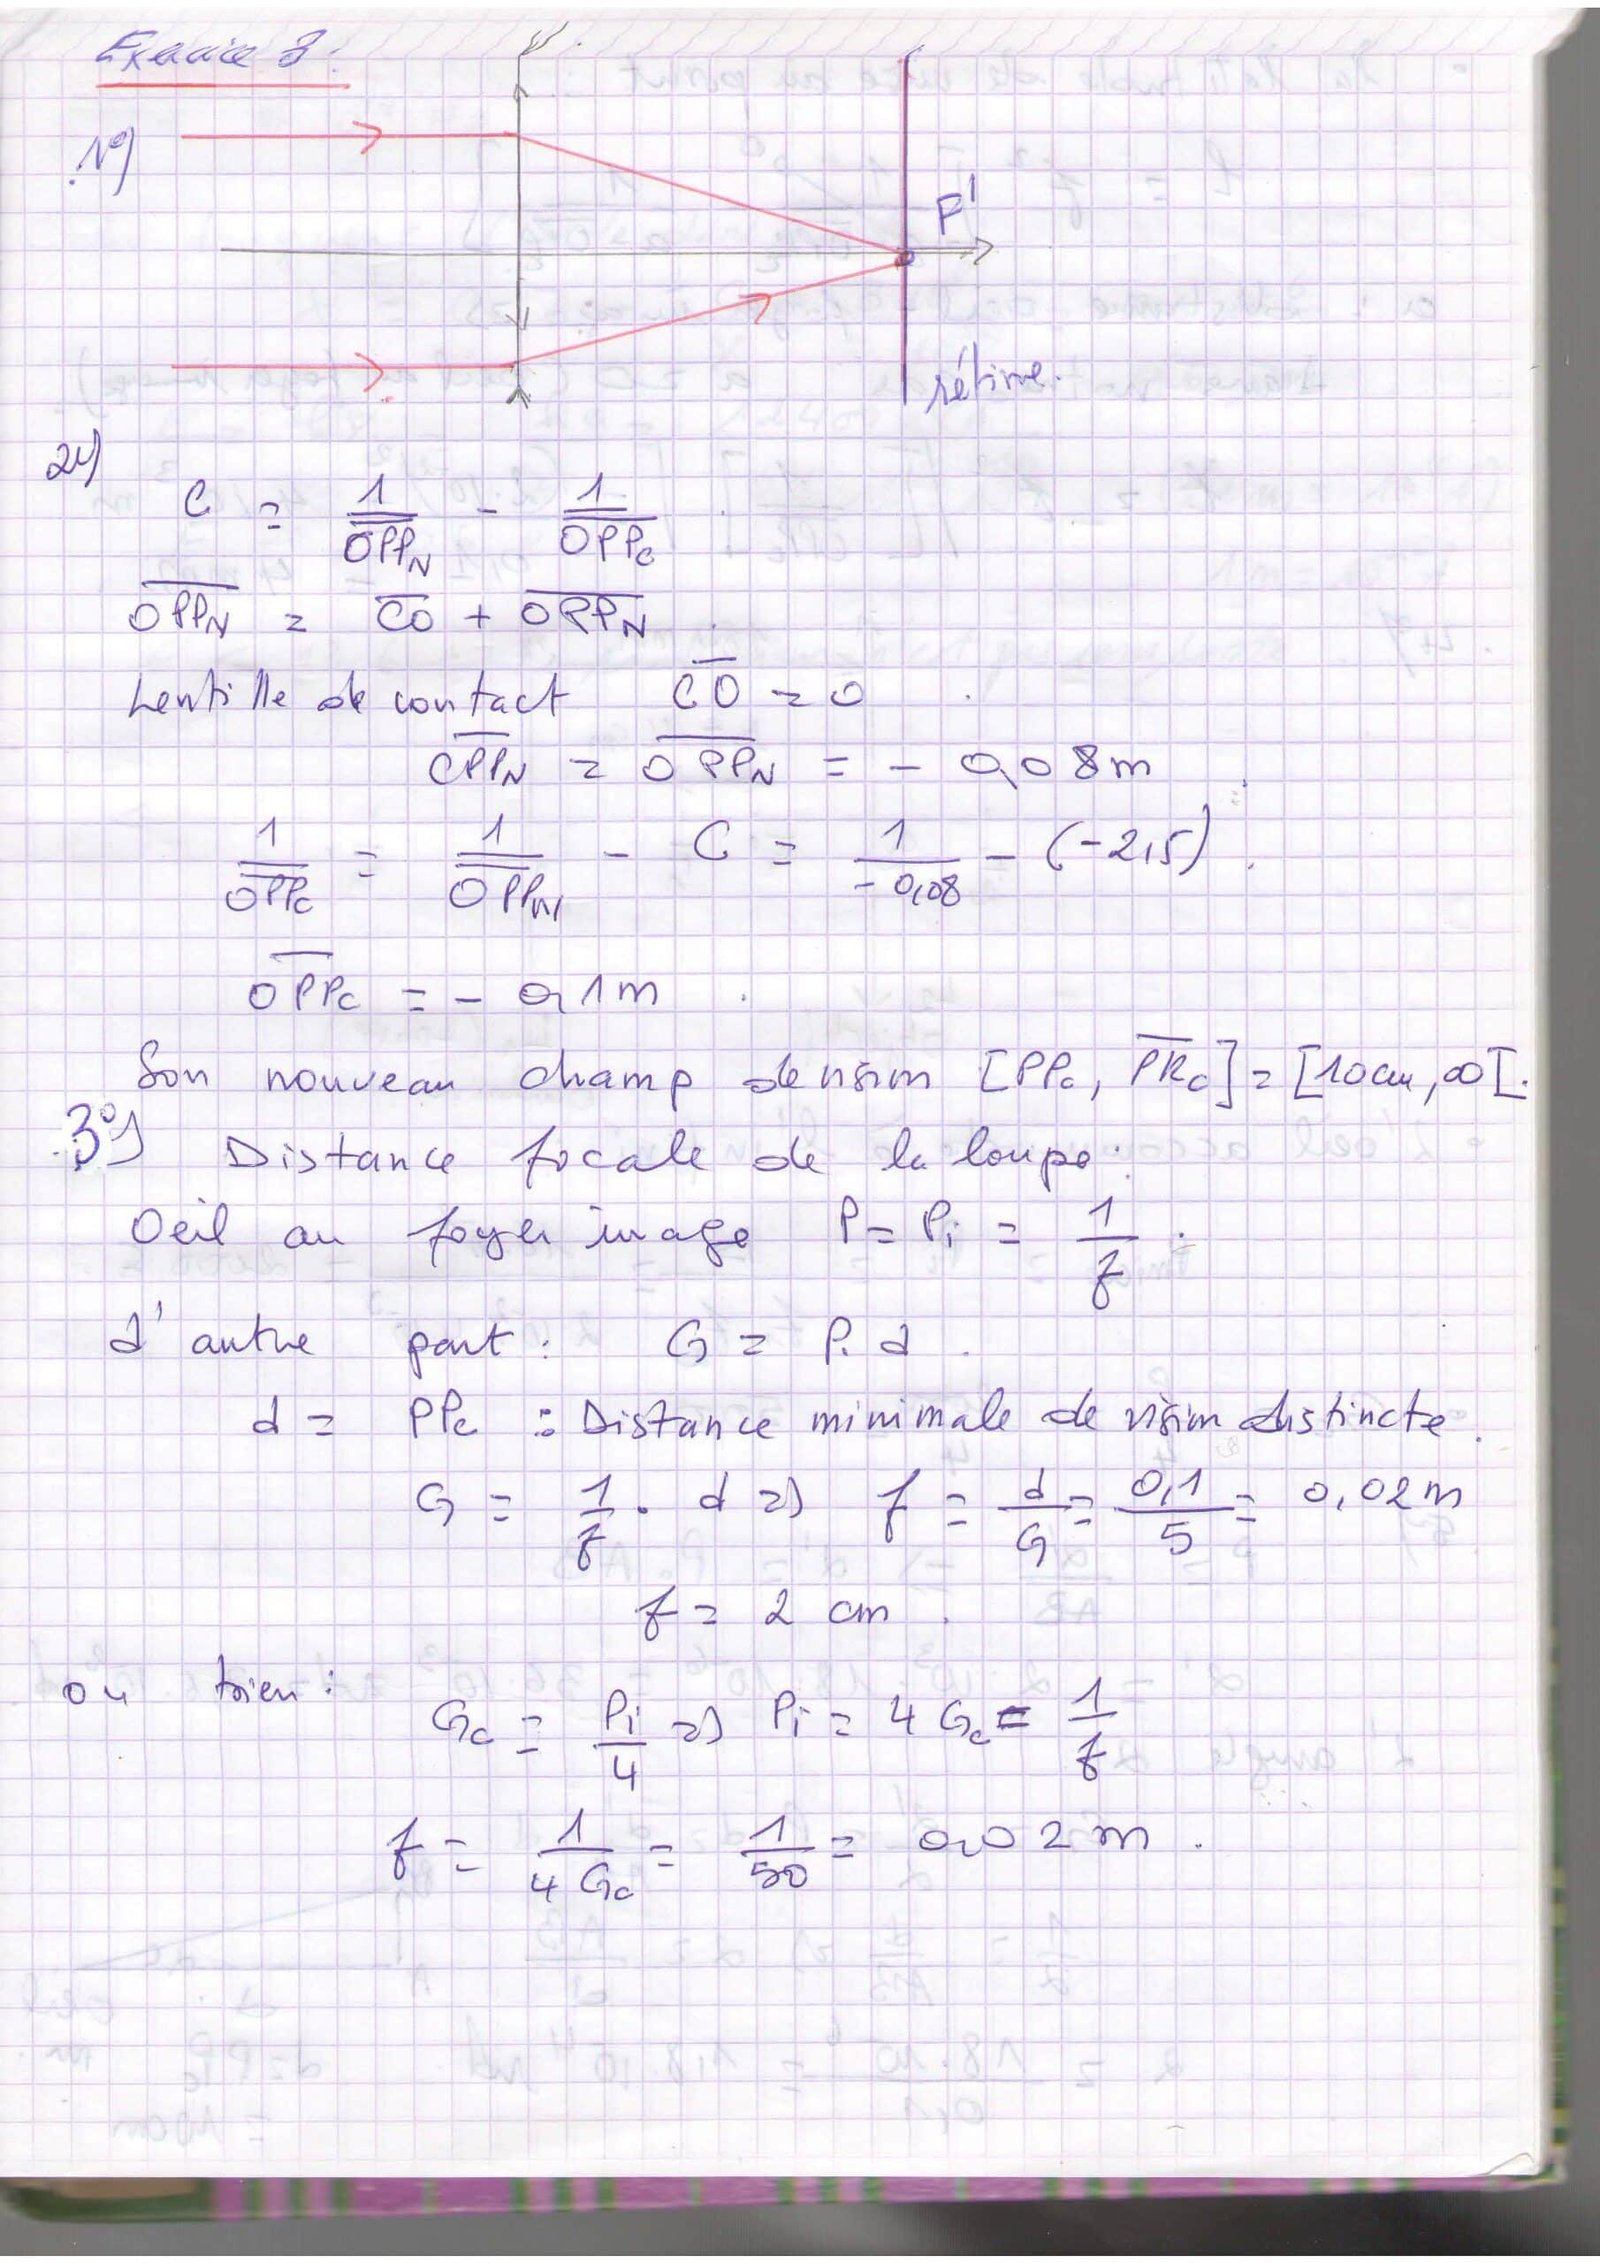 Exercice 3 :
1°)
F'
rétine.
2°)
C = 1/OPP_N - 1/OPP_C
OPP_N = CO + OPP_N
Lentille de contact CO = 0
CPP_N = OPP_N = - 0,08 m
1/OPP_C = 1/OPP_N - C = 1/-0,08 - (-2,5)
OPP_C = - 0,1 m
Son nouveau champ de vision [PP_C, PR_C] = [10 cm, ∞[.
3°) Distance focale de la loupe :
Oeil au foyer image P = Pi = 1/f .
d'autre part : G = P. d .
d = PP_C : Distance minimale de vision distincte .
G = 1/f . d => f = d/G = 0,1/5 = 0,02 m
f = 2 cm .
ou bien :
G_c = Pi/4 => Pi = 4 G_c = 1/f
f = 1/4 G_c = 1/50 = 0,02 m .